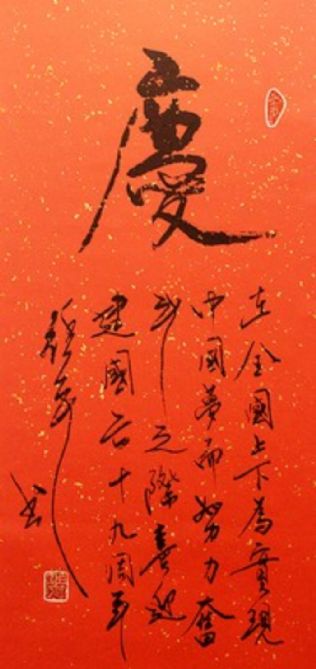 慶
在全國上下為實現
中國夢而努力奮
鬥之際喜迎
建國六十九周年
書